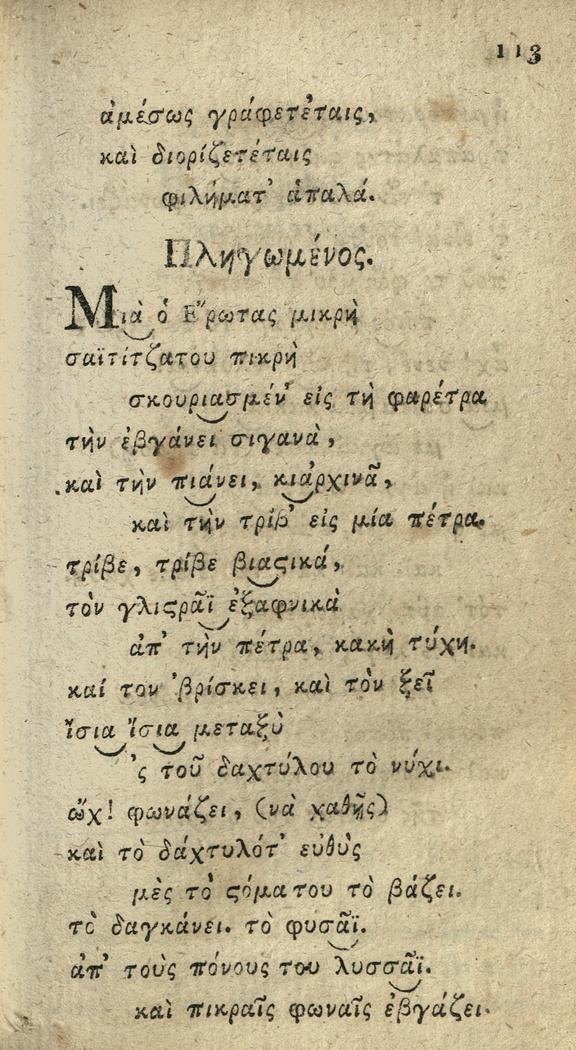 113
ἀμέσως γράφετέταις,
καὶ διορίζετέταις
φιλήματ' ἁπαλά.
Πληγωμένος.
Μιὰ ὁ Ἔρωτας μικρὴ
σαϊτίτζατου πικρὴ
σκουριασμέν' εἰς τὴ φαρέτρα
τὴν ἐβγάνει σιγανὰ,
καὶ τὴν πιάνει, κιἀρχινᾶ,
καὶ τὴν τρίβ' εἰς μία πέτρα.
τρίβε, τρίβε βιαϛικά,
τὸν γλιϛρᾶϊ ἐξαφνικὰ
ἀπ' τὴν πέτρα, κακὴ τύχη.
καί τον 'βρίσκει, καὶ τὸν ξεῖ
ἴσια ἴσια μεταξὺ
'ς τοῦ δαχτύλου τὸ νύχι.
ὤχ! φωνάζει, (νὰ χαθῇς)
καὶ τὸ δάχτυλότ' εὐθὺς
μὲς τὸ ϛόματου τὸ βάζει.
τὸ δαγκάνει. τὸ φυσᾶϊ.
ἀπ' τοὺς πόνους του λυσσᾶϊ.
καὶ πικραῖς φωναῖς ἐβγάζει.